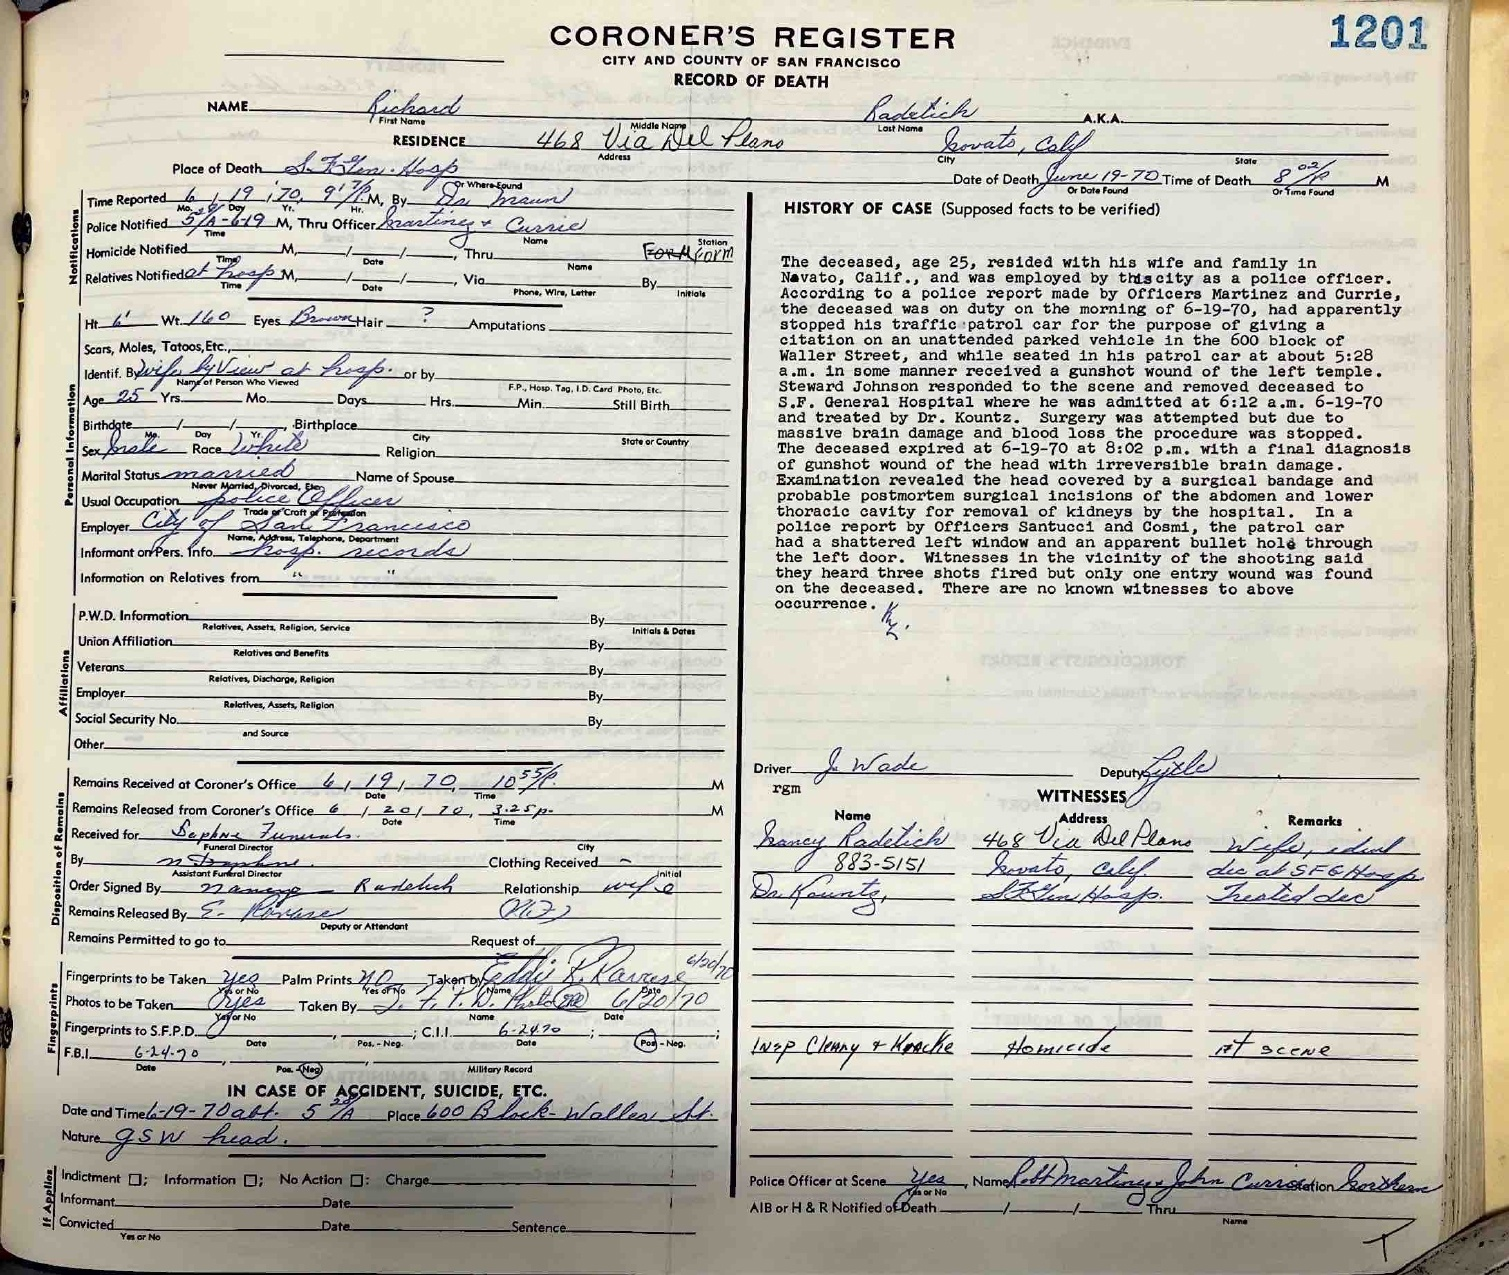 CORONER'S REGISTER
1201
CITY AND COUNTY OF SAN FRANCISCO
RECORD OF DEATH
NAME Richard Radetich A.K.A.
First Name Middle Name Last Name
RESIDENCE 468 Via Del Plano Novato, Calif
Address City State
Place of Death S.F. Gen. Hosp Date of Death June 19-70 Time of Death 8 02/P M
Or Where Found Or Date Found Or Time Found
Notifications
Time Reported 6 / 19 / '70, 9 17/P. M, By Dr. Maun
Mo. Day Yr. Hr.
Police Notified 5 28/A-6-19 M, Thru Officer Martinez + Currie
Time Name Station
Homicide Notified M, / / , Thru Form Form
Time Date Name
Relatives Notified at hosp M, / / , Via By
Time Date Phone, Wire, Letter Initials
Personal Information
Ht. 6' Wt. 160 Eyes Brown Hair ? Amputations
Scars, Moles, Tatoos, Etc.,
Identif. By wife by View at hosp. or by
Name of Person Who Viewed F.P., Hosp. Tag, I.D. Card Photo, Etc.
Age 25 Yrs. Mo. Days Hrs. Min. Still Birth
Birthdate / / , Birthplace
Mo. Day Yr. City State or Country
Sex Male Race White Religion
Marital Status married Name of Spouse
Never Married, Divorced, Etc.
Usual Occupation police Officer
Trade or Craft or Profession
Employer City of San Francisco
Name, Address, Telephone, Department
Informant on Pers. Info. hosp. records
Information on Relatives from " "
Affiliations
P.W.D. Information By
Relatives, Assets, Religion, Service Initials & Dates
Union Affiliation By
Relatives and Benefits
Veterans By
Relatives, Discharge, Religion
Employer By
Relatives, Assets, Religion
Social Security No. By
and Source
Other
Disposition of Remains
Remains Received at Coroner's Office 6 / 19 / 70, 10 55/P. M
Date Time
Remains Released from Coroner's Office 6 / 20 / 70, 3:25 p. M
Date Time
Received for Daphne Funerals.
Funeral Director City
By N Daphne. Clothing Received –
Assistant Funeral Director Initial
Order Signed By Nancy Radetich Relationship wife
Remains Released By E.
Deputy or Attendant
Remains Permitted to go to Request of
Fingerprints
Fingerprints to be Taken Yes Palm Prints NO Taken by Eddie R. 6/20/70
Yes or No Yes or No Name Date
Photos to be Taken Yes Taken By 6/20/70
Yes or No Name Date
Fingerprints to S.F.P.D. , ; C.I.I. 6-24-70 ; ,
Date Pos. - Neg. Date Pos - Neg.
F.B.I. 6-24-70 ,
Date Pos. - Neg Military Record
IN CASE OF ACCIDENT, SUICIDE, ETC.
Date and Time 6-19-70 abt. 5 28/A Place 600 Block - Waller St.
Nature GSW head.
If Applies
Indictment ; Information ; No Action : Charge
Informant Date
Convicted Date Sentence
Yes or No
HISTORY OF CASE (Supposed facts to be verified)
The deceased, age 25, resided with his wife and family in
Navato, Calif., and was employed by this city as a police officer.
According to a police report made by Officers Martinez and Currie,
the deceased was on duty on the morning of 6-19-70, had apparently
stopped his traffic patrol car for the purpose of giving a
citation on an unattended parked vehicle in the 600 block of
Waller Street, and while seated in his patrol car at about 5:28
a.m. in some manner received a gunshot wound of the left temple.
Steward Johnson responded to the scene and removed deceased to
S.F. General Hospital where he was admitted at 6:12 a.m. 6-19-70
and treated by Dr. Kountz. Surgery was attempted but due to
massive brain damage and blood loss the procedure was stopped.
The deceased expired at 6-19-70 at 8:02 p.m. with a final diagnosis
of gunshot wound of the head with irreversible brain damage.
Examination revealed the head covered by a surgical bandage and
probable postmortem surgical incisions of the abdomen and lower
thoracic cavity for removal of kidneys by the hospital. In a
police report by Officers Santucci and Cosmi, the patrol car
had a shattered left window and an apparent bullet hole through
the left door. Witnesses in the vicinity of the shooting said
they heard three shots fired but only one entry wound was found
on the deceased. There are no known witnesses to above
occurrence.
Driver J. Wade Deputy Lytle
rgm
WITNESSES
Name Address Remarks
Nancy Radetich 468 Via Del Plano Wife, ident
883-5151 Novato, Calif dec at SFG Hosp
Dr. Kountz, SF Gen Hosp. Treated dec
Insp Cleary + Homicide At scene
Police Officer at Scene Yes , Name Robt Martinez + John Currie Station Northern
Yes or No
AIB or H & R Notified of Death / / Thru
Name